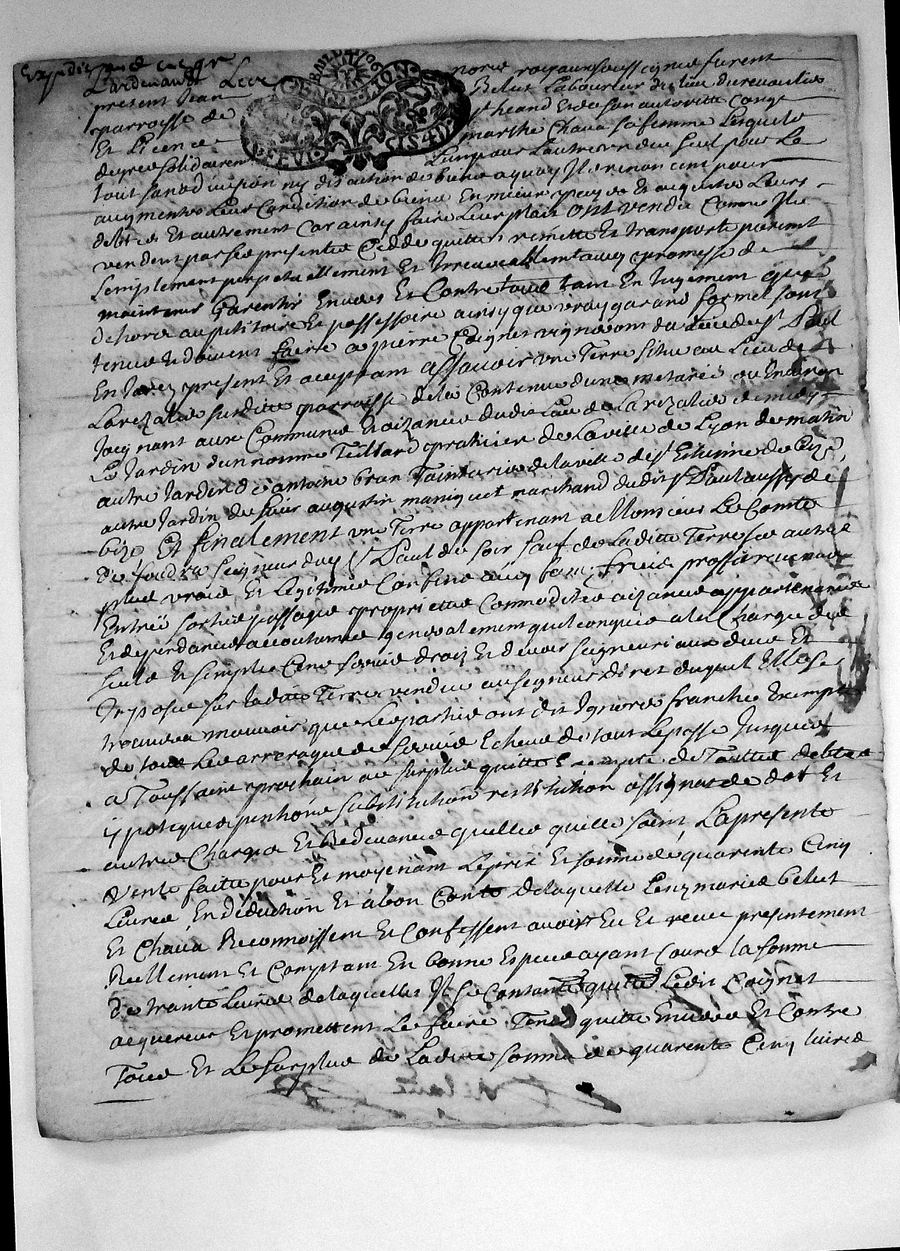 Expedie
Pardevant Le notre royal soussigne furent
present Jean Belut Laboureur du lieu
parroisse de St heand Et de son autoritte Conge
Et Licence marthe Chava sa femme Lesquels
de gre solidairement Lun pour Lautre un deux seul pour Le
tout sans division ny discution de biens a quoy Ils renoncent pour
augmenter Leur Condition de biens En mieux payer Et acquitter Leurs
debtes Et autrement Car ainsy faire Leur plait ont vendu Comme Ils
vendent par Ces presentes Cedde quitte remette Et transporte purement
simplement perpetuellement Et Irrevocablement avec promesse de
maintenir Garentir Envers Et Contre tous tant En Jugement que
dehors au petitoire Et possessoire ainsy que vray garand formel sont
tenus Et doivent faire a pierre Coignet vigneron du lieu de St Paul
En Jarez present Et acceptant assavoir une Terre situe au Lieu de
Larezalie susditte parroisse de la Contenue dune metaree ou Environ
Joignant aux Communs Et aizances dudit Lieu de Larezalie de midy
Le Jardin dun nomme Teillard praticier de la ville de Lyon de matin
autre Jardin d'antoine bran Tainturier de la ville de St Etienne de bize
autre Jardin de sieur augustin maniquet marchand dudit St Paul aussy de
bize Et finalement une Terre appartenant a Monsieur Le Comte
de seigneur dudit St Paul de soir sauf de Laditte Terre ses autres
plus vrais Et Legitimes Confins avec ses fonds fruits proffits revenus
Entrees sorties passages proprietes Commodites aizances appartenances
Et dependances accoutumes generalement quelconques a la Charge du
seule Et simple Cens servis droits Et devoirs seigneuriaux deue Et
Imposee sur laditte Terre vendue au seigneur direct duquel Elle se
trouvera mouvoir que Les parties ont dit Ignorer franche Exempte
de tous Les arrerages de servis Echeus de tout Le passe Jusques
a Toussaint prochain au surplus quitte Exempte de Touttes debtes
ypoteques pensions substitution restitution assignats de dot Et
autres Charges Et Redevances quelles quelles soient, La presente
vente faitte pour Et moyenant Le prix Et somme de quarente Cinq
Livres En deduction Et a bon Conte de laquelle Les maries belut
Et Chava Reconnoissent Et Confessent avoir Eu Et receu presentement
Reellement Et Comptant En bonne Espece ayant Cours la somme
de trante Livres delaquelle Ils se Contantent quitte Ledit Coignet
acquereur Et promettent Le faire Tenir quitte Envers Et Contre
Tous Et Le surplus de Laditte somme de quarente Cinq livres
GEN. DE LION